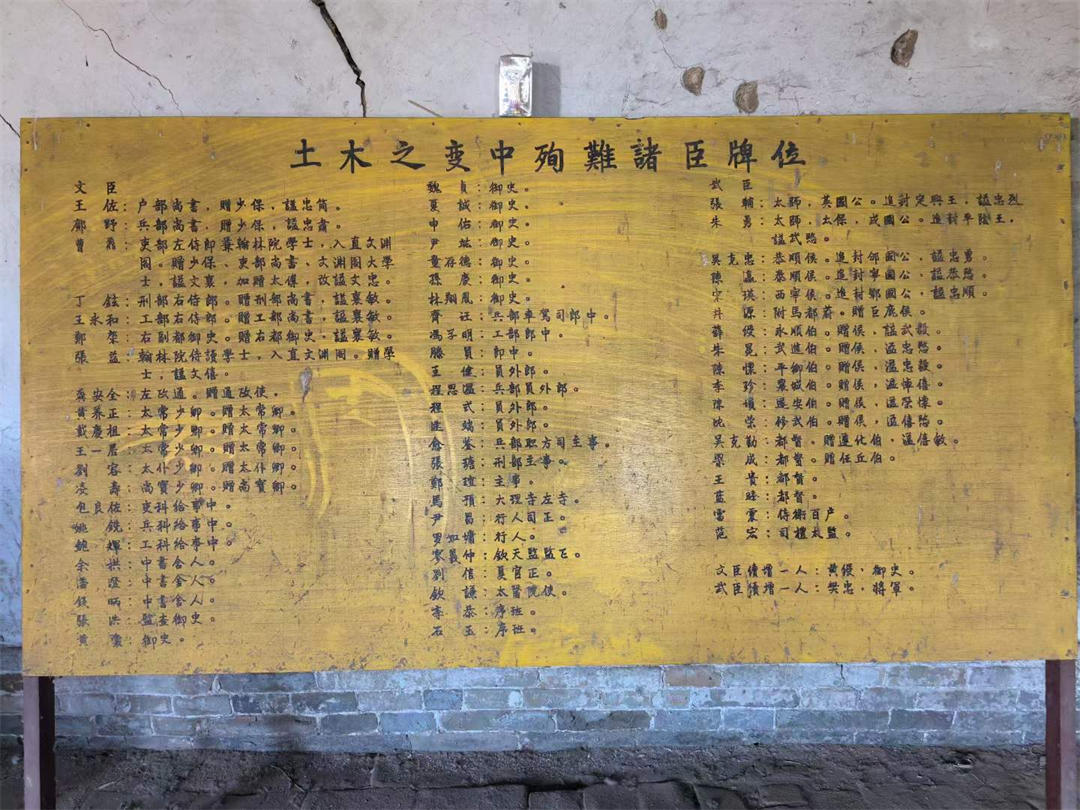 土木之变中殉難諸臣牌位
文 臣
王 佐：户部尚書，贈少保，謚忠简。
鄺 野：兵部尚書，贈少保，謚忠肃。
曹 鼐：吏部左侍郎兼翰林院學士，入直文渊
阁。贈少保、吏部尚書，文渊阁大學
士，謚文襄，加贈太傅，改謚文忠。
丁 鉉：刑部右侍郎。贈刑部尚書，謚襄敏。
王永和：工部右侍郎。贈工部尚書，謚襄敏。
鄧 棨：右副都御史。贈右都御史，謚襄敏。
張 益：翰林院侍讀學士，入直文渊阁。贈學
士，謚文僖。
龚安全：左政通。贈通政使，
黄养正：太常少卿。贈太常卿。
戴慶祖：太常少卿。贈太常卿。
王一居：太常少卿。贈太常卿。
劉 容：太仆少卿。贈太仆卿。
凌 壽：尚寶少卿。贈尚寶卿。
包良佐：吏科给事中。
姚 銑：兵科给事中。
鲍 輝：工科给事中。
余 拱：中書舍人。
潘 澄：中書舍人。
錢 昞：中書舍人。
張 洪：監查御史。
黄 裳：御史。
魏 貞：御史。
夏 誠：御史。
申 佑：御史。
尹 竑：御史。
童存德：御史。
孫 慶：御史。
林翔鳳：御史。
齊 汪：兵部車駕司郎中。
馮子明：工部郎中。
滕 員：郎中。
王 健：員外郎。
程思温：兵部員外郎。
程 式：員外郎。
逯 端：員外郎。
俞 鉴：兵部职方司主事。
張 瑭：刑部主事。
鄭 瑄：主事。
馬 預：大理寺左寺。
尹 昌：行人司正。
罗如墉：行人。
寥義仲：欽天監監正。
劉 信：夏官正。
欽 謙：太醫院使。
李 恭：序班。
石 玉：序班。
武 臣
張 輔：太師，英國公。進封定興王，謚忠烈
朱 勇：太師，太保，成國公。進封平陰王，
謚武愍。
吴克忠：恭順侯。進封邠國公，謚忠勇。
陳 瀛：泰順侯。進封寧國公，謚恭愍。
宋 瑛：西寧侯。進封鄆國公，謚忠順。
井 源：附馬都蔚。贈巨鹿侯。
薛 绶：永順伯。贈侯，谥武毅。
朱 冕：武進伯。贈侯，谥忠愍。
陳 懷：平鄉伯。贈侯，谥忠毅。
李 珍：襄城伯。贈侯，谥悼僖。
陳 埙：遂安伯。贈侯，谥荣懷。
沈 荣：修武伯。贈侯，谥僖愍。
吴克勤：都督。贈遵化伯，谥僖敏。
梁 成：都督。贈任丘伯。
王 貴：都督。
蓝 睦：都督。
雷 霖：侍衛百户。
范 宏：司禮太監。
文臣續增一人：黄绶，御史。
武臣續增一人：樊忠，將軍。